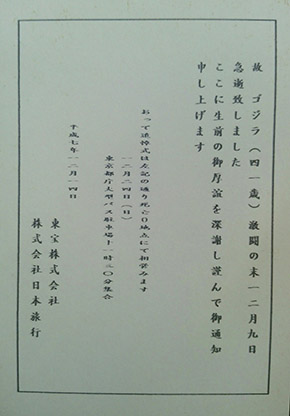 故　ゴジラ（四一歳）激闘の末一二月九日
急逝致しました
ここに生前の御厚誼を深謝し謹んで御通知
申し上げます
おって追悼式は左記の通り死亡地点にて相営みます
一二月二四日（日）
東京都庁大型バス駐車場十一時三〇分集合
平成七年一二月一四日
東宝株式会社
株式会社日本旅行